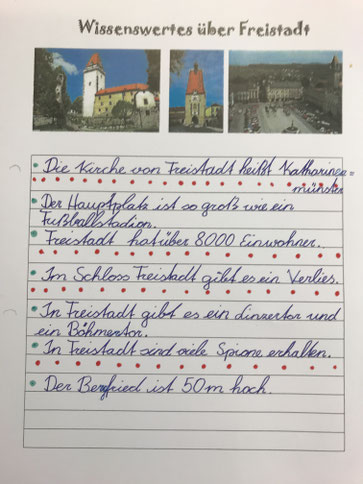 Wissenswertes über Freistadt
Die Kirche von Freistadt heißt Katharinen=
münster
Der Hauptplatz ist so groß wie ein
Fußballstadion.
Freistadt hat über 8000 Einwohner.
Im Schloss Freistadt gibt es ein Verlies.
In Freistadt gibt es ein Linzertor und
ein Böhmertor.
In Freistadt sind viele Spione erhalten.
Der Bergfried ist 50m hoch.